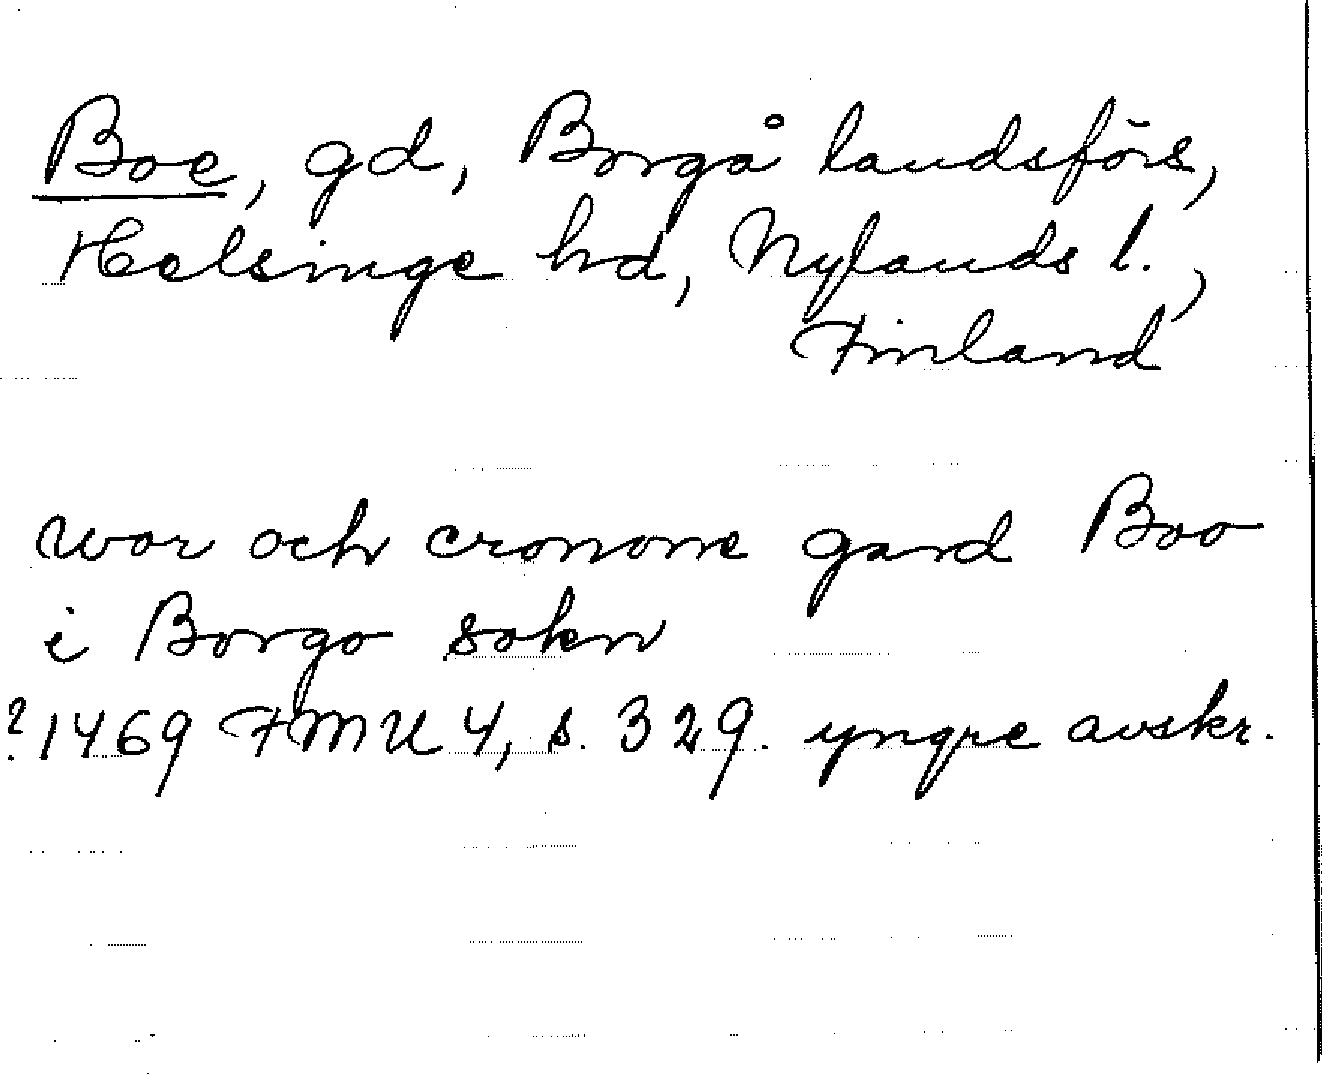 Boe, gd, Borgå landsförs,
Helsinge hd, Nylands l.,
Finland
wor och cronone gard Boo
i Borgo sokn
?1469 FMU 4, s. 329. yngre avskr.